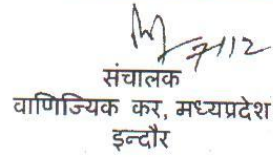 7/12
संचालक
वाणिज्यिक कर, मध्यप्रदेश
इन्दौर